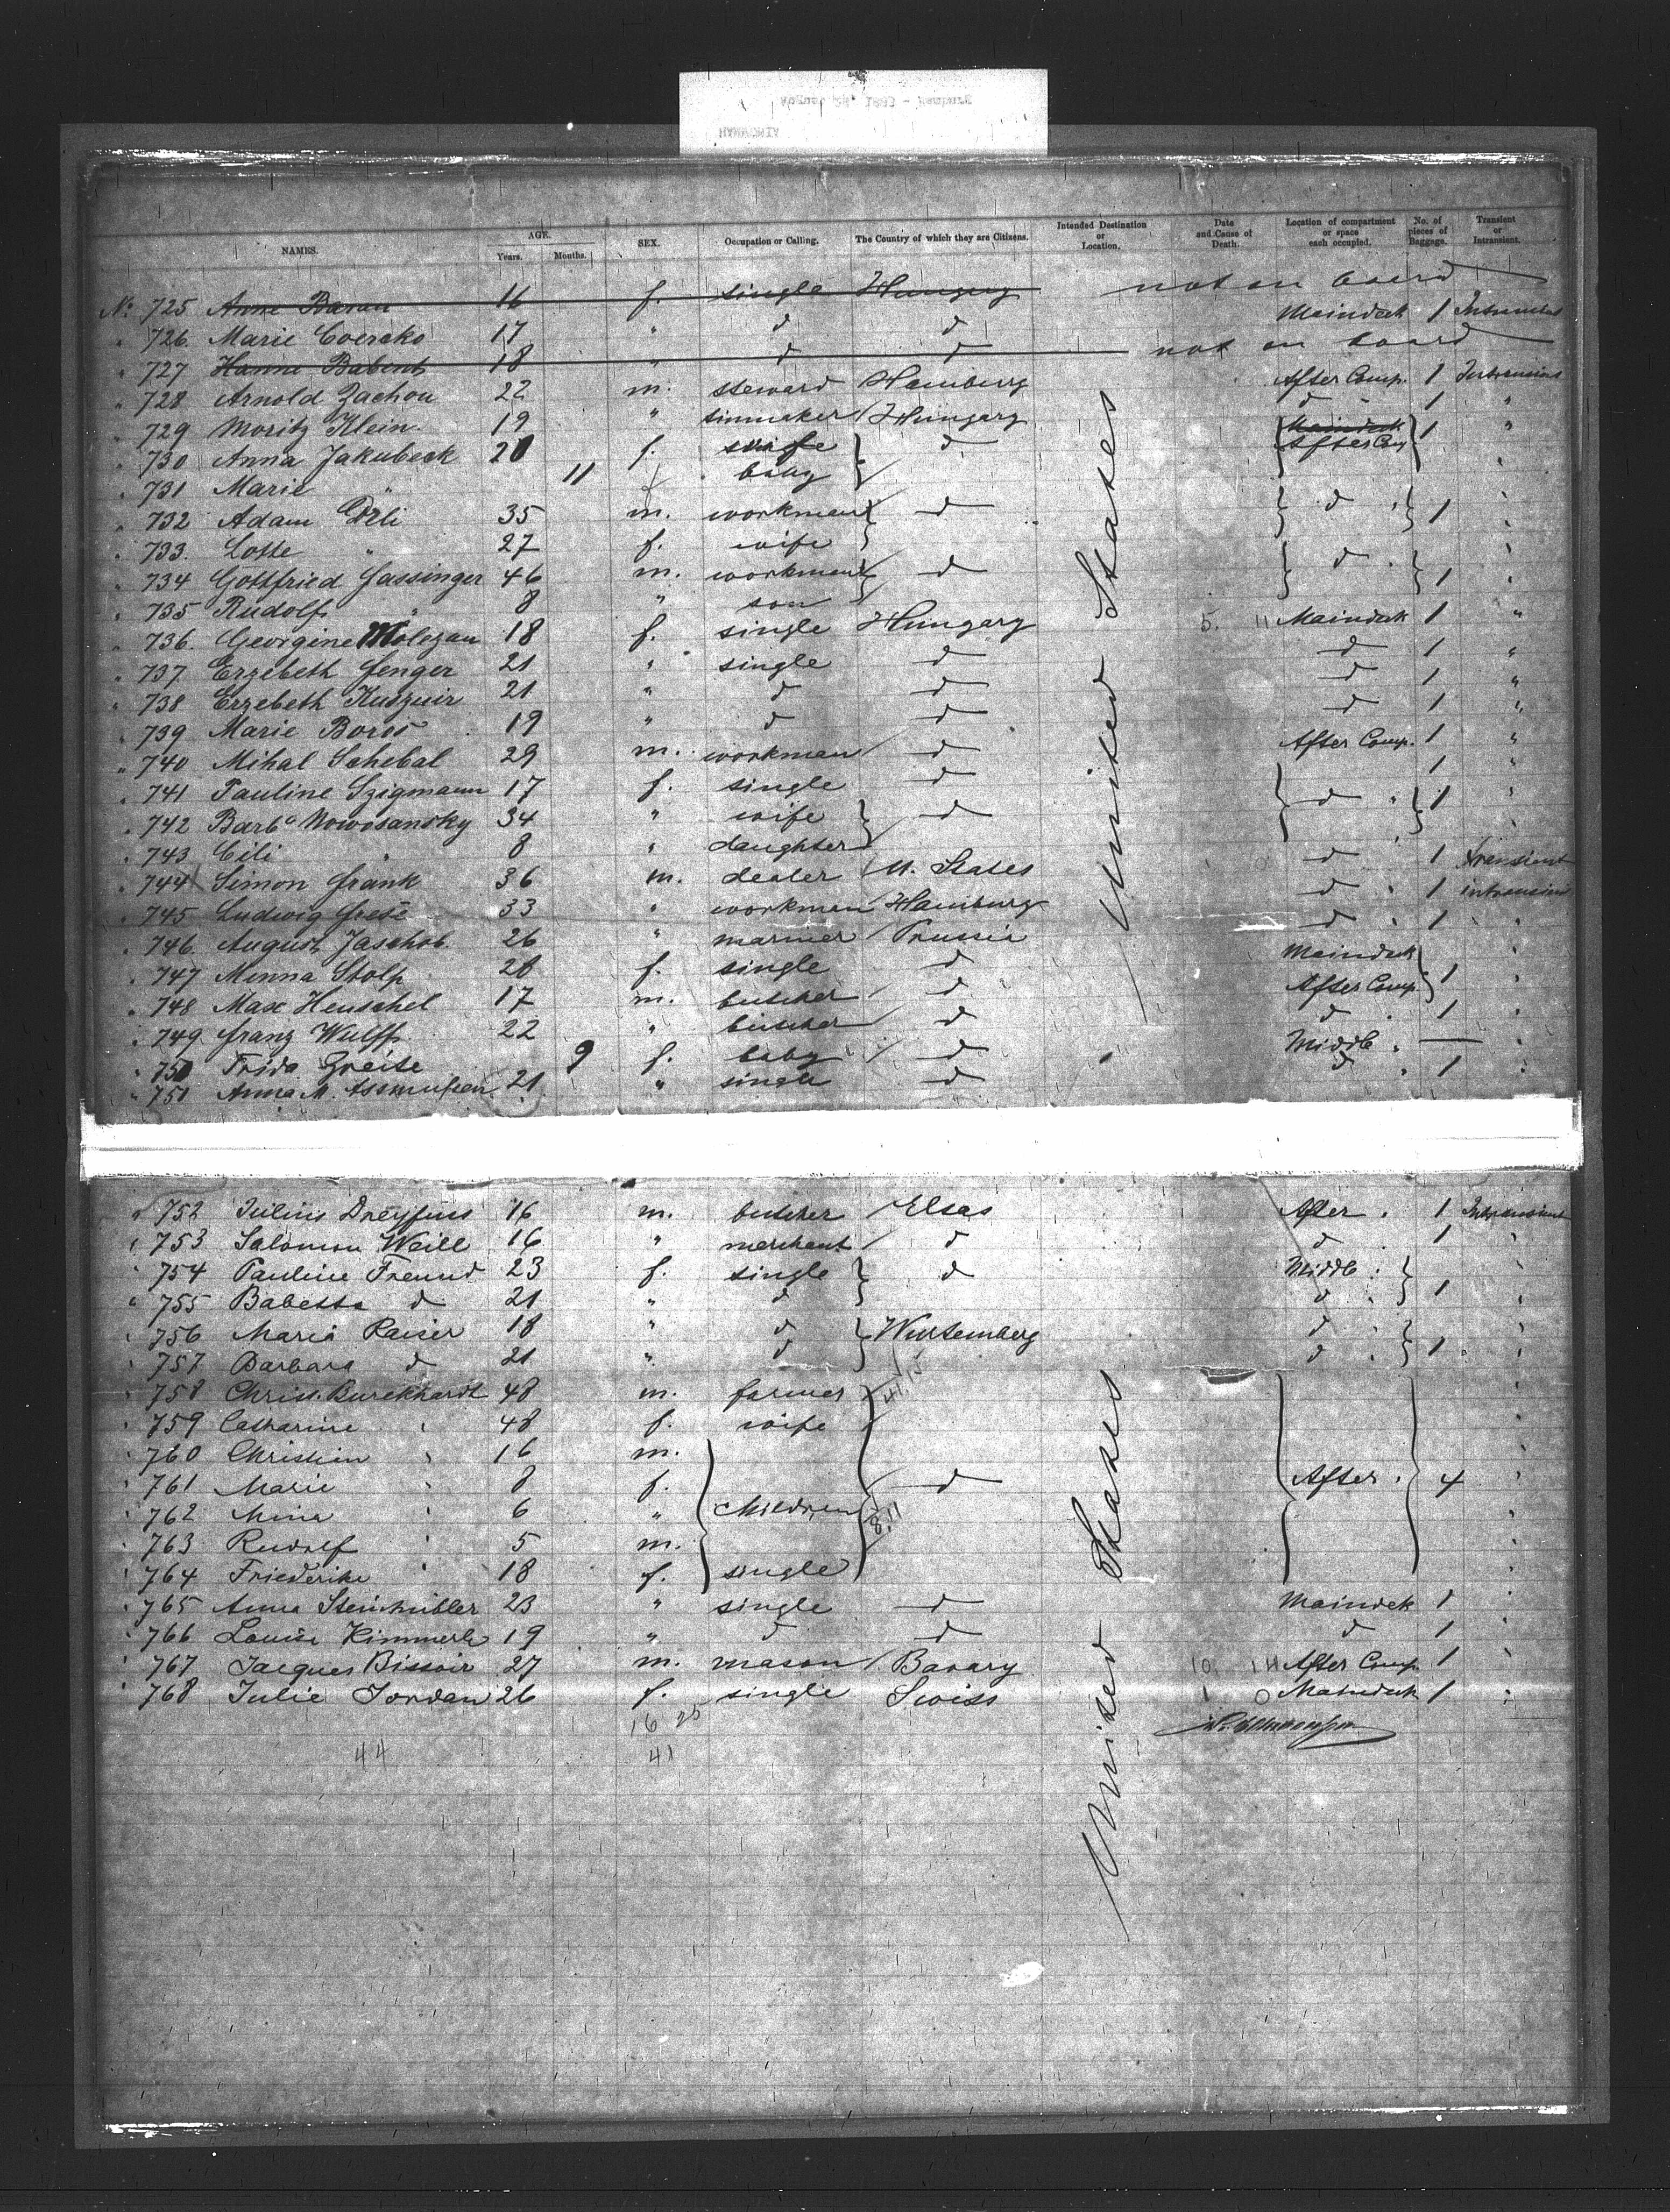 NAMES. AGE. Years. Months. SEX. Occupation or Calling. The Country of which they are Citizens. Intended Destination or Location. Date and Cause of Death. Location of compartment or space each occupied. No. of pieces of Baggage. Transient or Intransient.
No. 725 Anna Baran 16 f. single Hungary not on board
" 726. Marie 17 " d d Maindeck 1 Intransient
" 727 Hanne 18 " d d not on board
" 728 Arnold Zachou 22 m. steward Hamburg After Comp. 1 Intransient
" 729 Moritz Klein. 19 " tinmaker Hungary d 1 "
" 730 Anna Jakubeck 20 f. wife d Maindeck After Comp 1 "
" 731 Marie " 11 f baby "
" 732 Adam 35 m. workman d d 1 "
" 733. Lotte " 27 f. wife "
" 734 Gottfried Gassinger 46 m. workman d d 1 "
" 735 Rudolf " 8 " son "
" 736. Georgine 18 f. single Hungary 5. 11 Maindeck 1 "
" 737 Erzebeth Fenger 21 " single d d 1 "
" 738 Erzebeth 21 " d d d 1 "
" 739 Marie Boros 19 " d d d 1 "
" 740 Mihal Schebal 29 m. workman d After Comp. 1 "
" 741 Pauline Szigmann 17 f. single d 1 "
" 742 Barba Nowosansky 34 " wife d d " 1 "
" 743 Cili " 8 " daughter "
" 744 Simon Frank 36 m. dealer U. States d 1 transient
" 745 Ludwig Grese 33 " workman Hamburg d " 1 intransient
" 746. August Jaschob. 26 " mariner Prussia d " 1 "
" 747 Menna Stolp 20 f. single d Maindeck "
" 748 Max Henschel 17 m. butcher d After Comp. 1 "
" 749. Franz Wulff. 22 " butcher d d " 1 "
" 750 Frida Greite 9 f. baby d Middle " — "
" 751 Anna M. Assmussen 21. " single d d " 1 "
" 752 Julius Dreyfuss 16 m. butcher Elsas After . 1 Intransient
" 753 Salomon Weill 16 " merchant d d . 1 "
" 754 Pauline Freund 23 f. single d Middle . "
" 755 Babetta d 21 " d d . 1 "
" 756 Maria Kaiser 18 " d Wurtemberg d . "
" 757 Barbara d 21 " d d . 1 "
" 758 Christ. Burckhardt 48 m. farmer "
" 759 Catharine " 48 f. wife "
" 760 Christian " 16 m. "
" 761 Marie " 8 f. d After . 4 "
" 762 Mina " 6 " children "
" 763 Rudolf " 5 m. "
" 764 Friederike " 18 f. single "
" 765 Anna Steinhübler 23 " single d Maindeck 1 "
" 766 Louise Kimmerle 19 " d d d 1 "
" 767 Jacques Bissoir 27 m. mason Bavary 10. 14 After Comp. 1 "
" 768 Julie Jordan 26 f. single Swiss 1 0 Maindeck 1 "
16 25
44 41
United States
United States